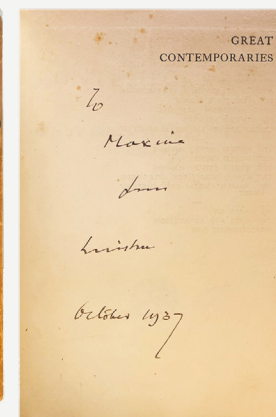 GREAT
CONTEMPORARIES
To
Maxine
from
Winston
October 1937